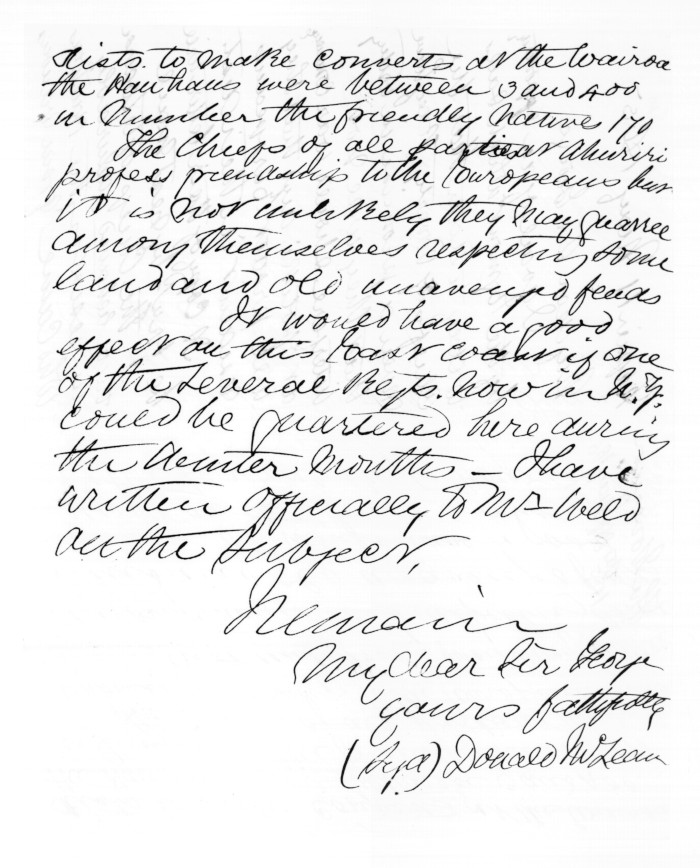 rists. to make converts at the Wairoa
the Hauhaus were between 3 and 400
in number the friendly natives 170
The Chiefs of all parties at Ahuriri
profess friendship to the Europeans but
it is not unlikely they may quarrel
among themselves respecting some
land and old unavenged feuds
It would have a good
effect on this East Coast if one
of the several Regts. now in N.Z.
could be quartered here during
the Winter Months – I have
written officially to Mr Weld
on the subject,
I remain
My dear Sir George
yours faithfully
(Sgd) Donald McLean